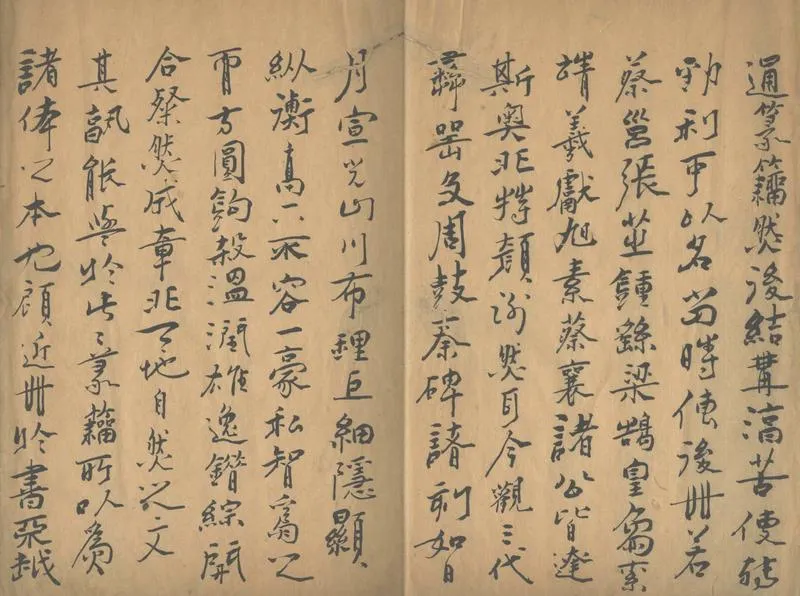 通篆籀然後結冓淳古使轉
勁利可以名當時傳後世若
蔡邕張芝鍾繇梁鵠皇象索
靖羲獻旭素蔡襄諸公皆達
斯奧非特顏謝然耳今觀三代
彝器文周鼓秦碑諸刻如日
月宣光山川布理巨細隱顯
縱衡高下不容一豪私智為之
而方圓鉤殺溫潤雄逸錯綜開
合粲然成章非天地自然之文
其孰能與於此〻篆籀所以為
諸体之本也顧近世於書